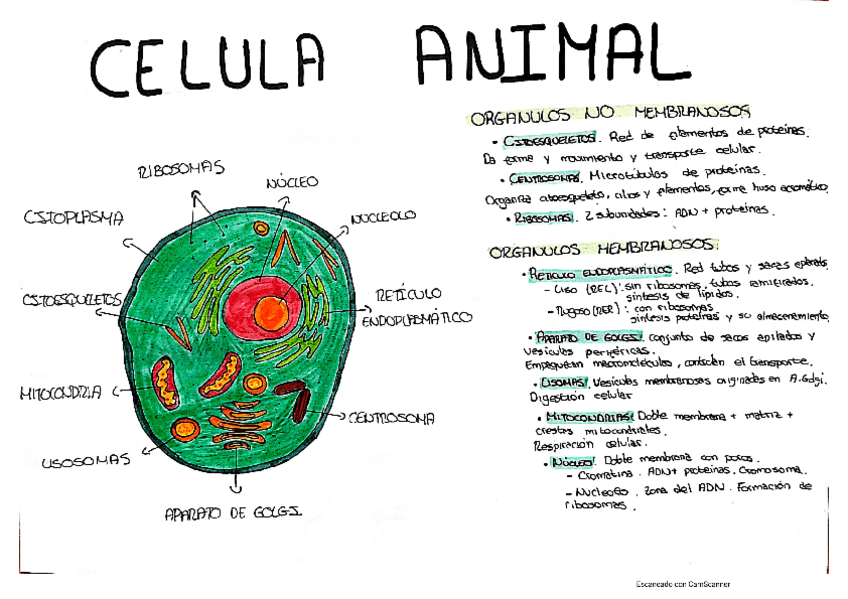 CELULA ANIMAL
RIBOSOMAS
NÚCLEO
CITOPLASMA
NUCLEOLO
CITOESQUELETOS
RETÍCULO
ENDOPLASMÁTICO
MITOCONDRIA
CENTROSOMA
LISOSOMAS
APARATO DE GOLGI
ORGANULOS NO MEMBRANOSOS
• CITOESQUELETOS. Red de elementos de proteinas.
Da forma y movimiento y transporte celular.
• CENTROSOMAS. Microtúbulos de proteinas.
Organiza citoesqueleto, cilios y, forma huso acromático
• RIBOSOMAS. 2 subunidades: ADN + proteinas.
ORGANULOS MEMBRANOSOS:
• RETICULO ENDOPLASMÁTICO. Red tubos y sacos
- Liso (REL): sin ribosomas, tubos ramificados.
síntesis de lípidos.
- Rugoso (RER): con ribosomas
síntesis proteinas y su almacenamiento
• APARATO DE GOLGI: conjunto de sacos apilados y
vesiculas periféricas.
Empaquetan macromoléculas, el transporte.
• LISOMAS: Vesículas membranosas originadas en A.Golgi.
Digestión celular
• MITOCONDRIAS: Doble membrana + matriz +
crestas mitocondriales.
Respiración celular.
• NÚCLEO: Doble membrana con poros.
- Cromatina. ADN + proteinas. Cromosoma.
- Nucleolo. Zona del ADN. Formación de
ribosomas.
Escaneado con CamScanner